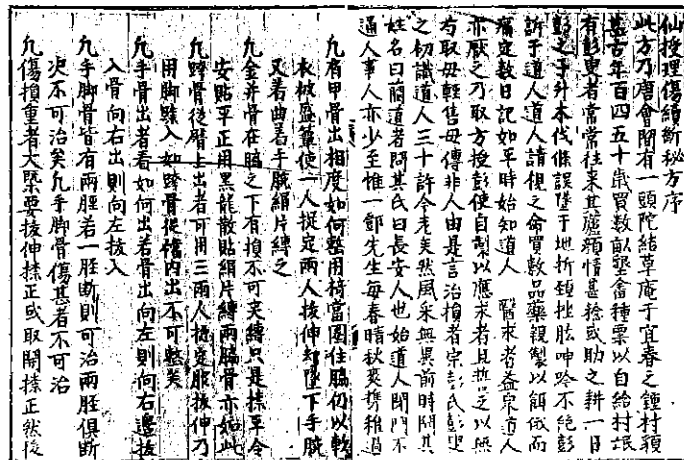 仙授理傷續斷秘方序
此方乃唐會閒有一頭陀結草庵于宜春之鍾村貌
甚古年百四五十歲買數畝墾畬種粟以自給村氓
有彭叟者常常往来其廬顔情甚稔或助之耕一日
彭之子升木伐條誤墜于地折頸挫肱呻吟不絶彭
訴于道人道人請視之命買數品藥親製以餌俄而
痛定數日已如平時始知道人 醫求者益衆道人
亦厭之乃取方授彭使自製以應求者且誓之以無
苟取毋輕售毋傳非人由是言治損者宗彭氏彭叟
之初識道人三十許今老矣然風采無異前時問其
姓名曰藺道者問其氏曰長安人也始道人閉門不
通人事人亦少至惟一鄧先生每春晴秋爽携稚過
凡肩甲骨出相度如何整用椅當圈住脇仍以軟
衣被盛簟使一人捉定兩人拔伸却墜下手腕
又着曲着手腕絹片縛之
凡金井骨在脇之下有損不可夾縛只是捺平令
安貼平正用黑龍散貼絹片縛兩脇骨亦如此
凡胯骨從臀上出者可用三兩人捉定腿拔伸乃
用脚䠋入如胯骨從襠内出不可整矣
凡手骨出者看如何出若骨出向左則向右邊拔
入骨向右出則向左拔入
凡手脚骨皆有兩脛若一脛断則可治兩脛俱断
决不可治矣凡手脚骨傷甚者不可治
凡傷損重者大槩要拔伸捺正或取開捺正然後